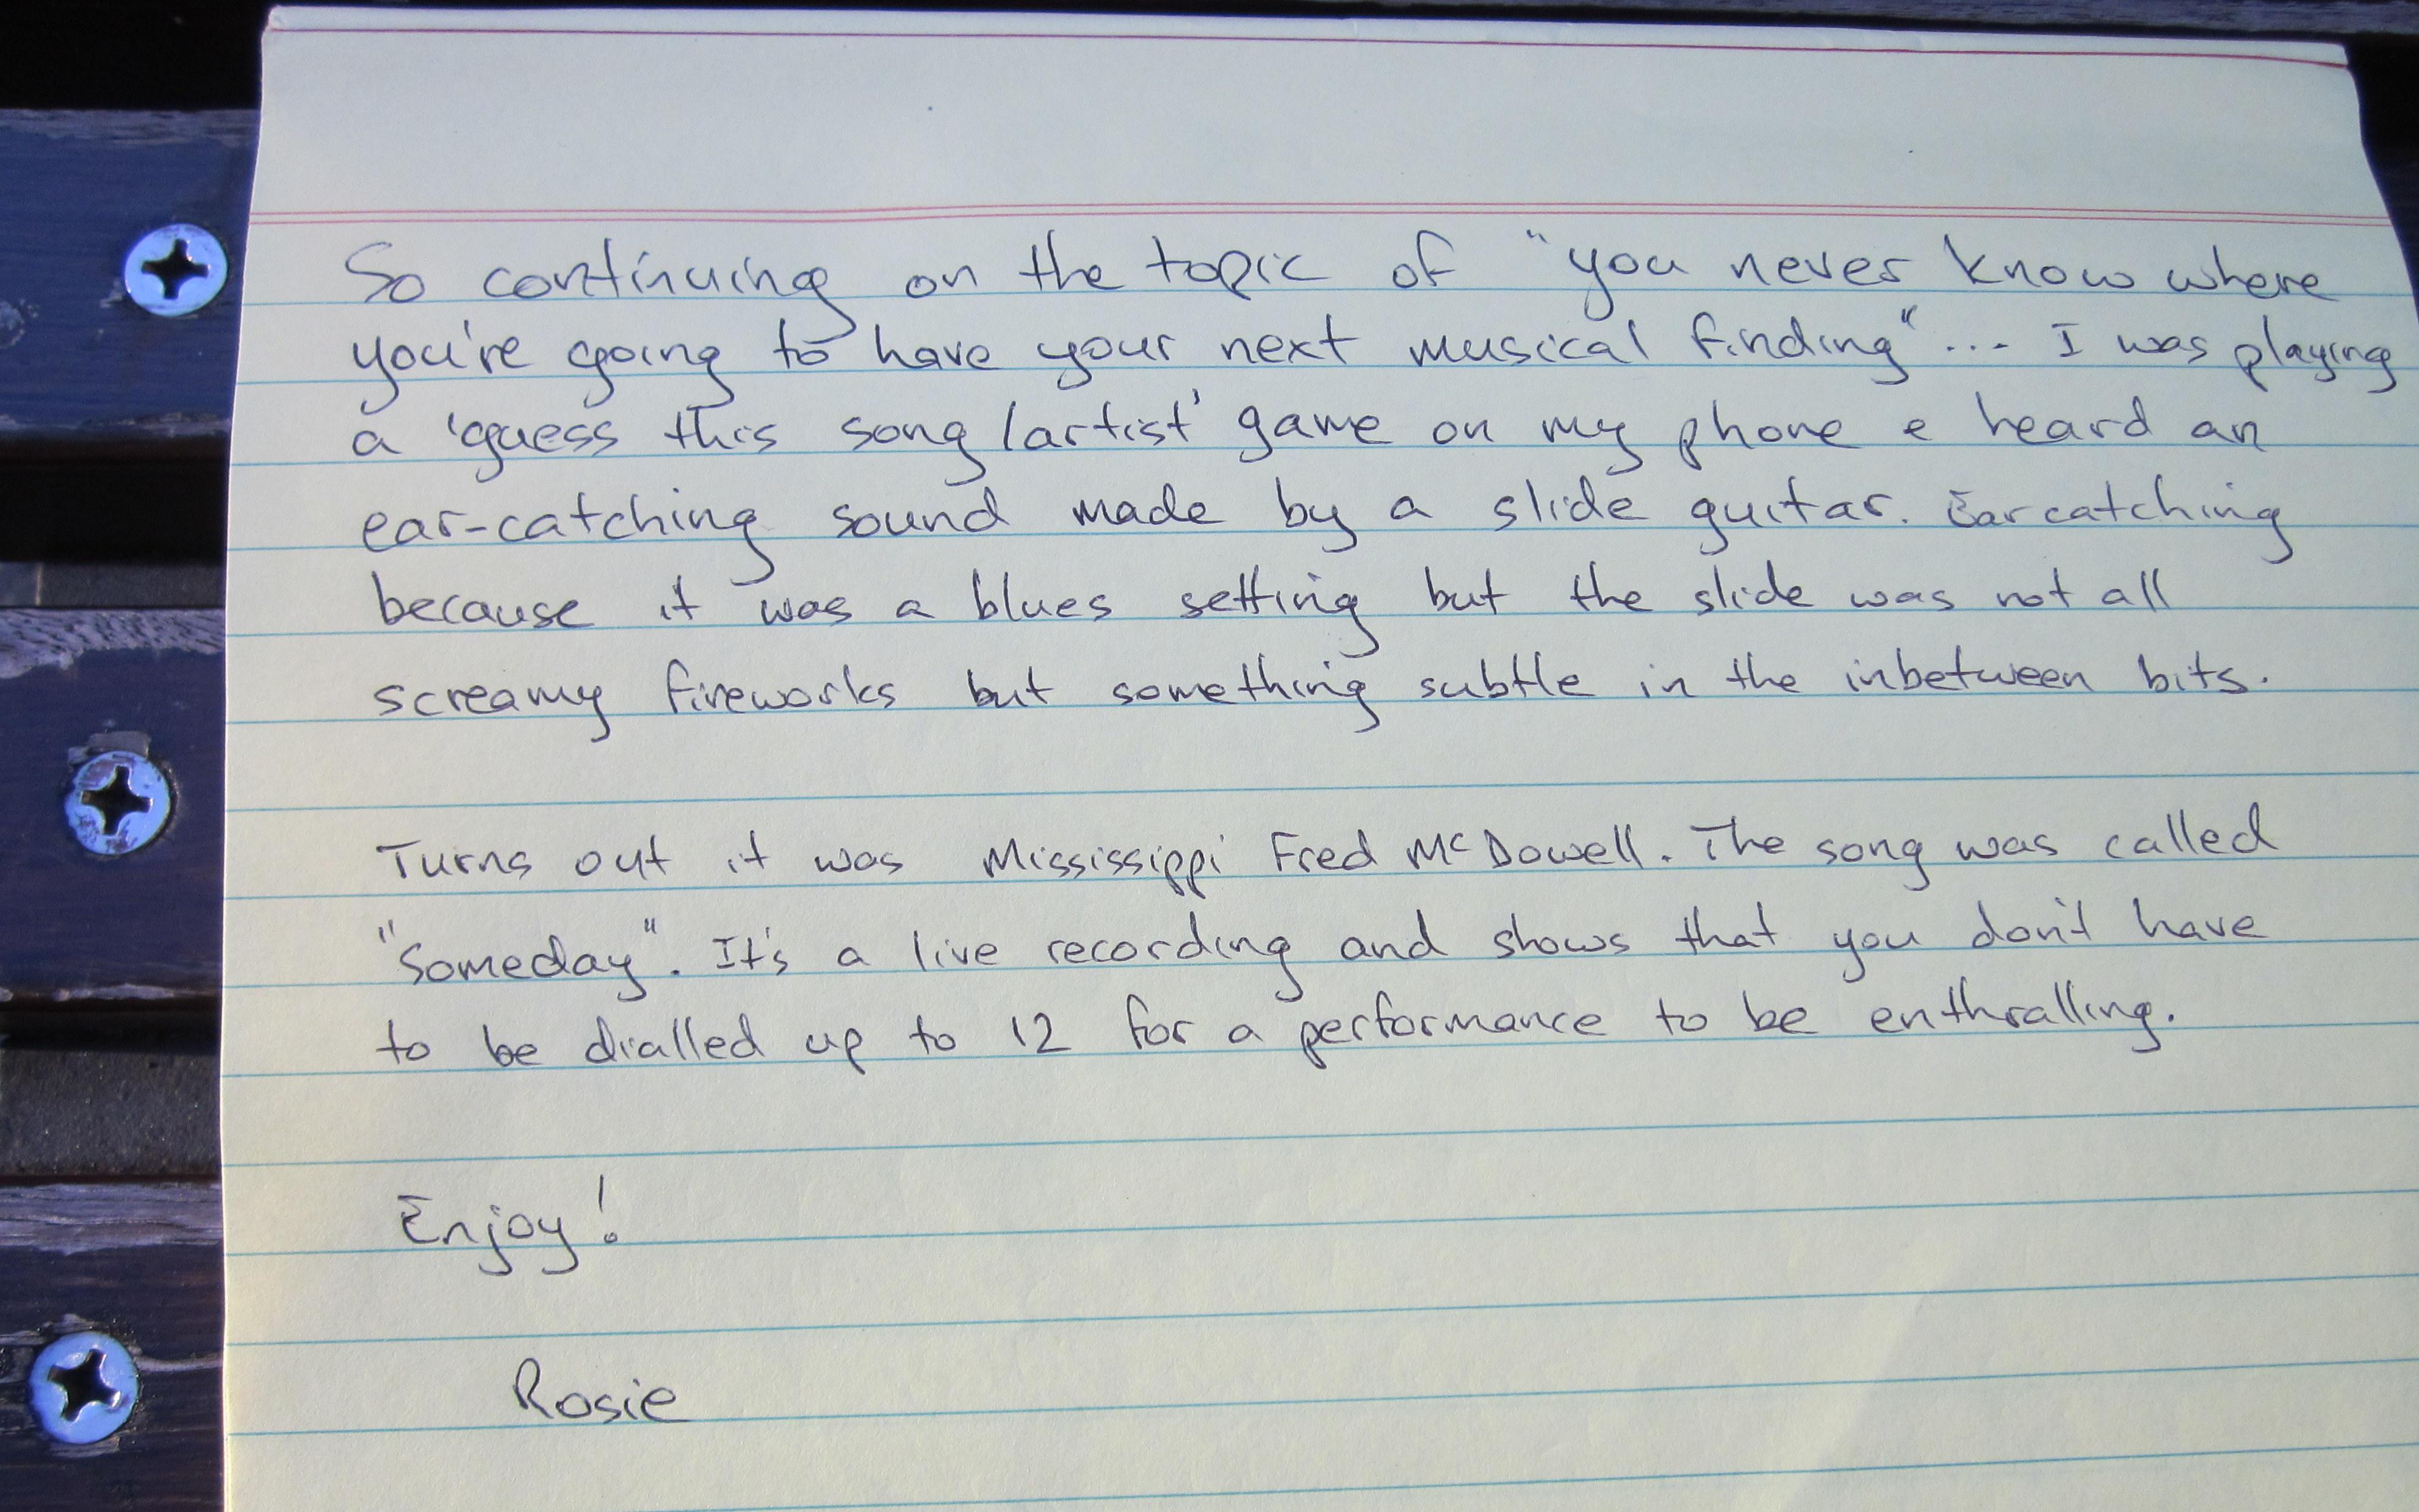 So continuing on the topic of "you never know where
you're going to have your next musical finding"... I was playing
a 'guess this song/artist' game on my phone e heard an
ear-catching sound made by a slide guitar. Ear catching
because it was a blues setting but the slide was not all
screamy fireworks but something subtle in the inbetween bits.
Turns out it was Mississippi Fred McDowell. The song was called
"Someday". It's a live recording and shows that you don't have
to be dialled up to 12 for a performance to be enthralling.
Enjoy!
Rosie